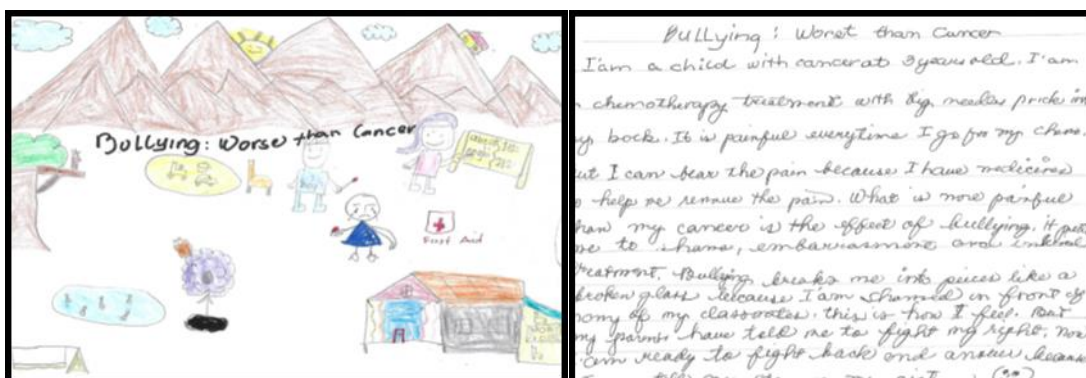 Bullying: Worse than Cancer
Boy
First Aid
Bullying: Worst than Cancer
I'am a child with cancer at 3 years old. I'am
chemotherapy treatment with big needles prick in
my back. It is painful everytime I go for my chemo.
ut I can bear the pain because I have medicines
o help me remove the pain. What is more painful
han my cancer is the effect of bullying. it puts
me to shame, embarrassment and
treatment. Bullying breaks me into pieces like a
broken glass because I'am shamed in front of
many of my classmates. this is how I feel. But
my parents have told me to fight my right. now
am ready to fight back and answer because